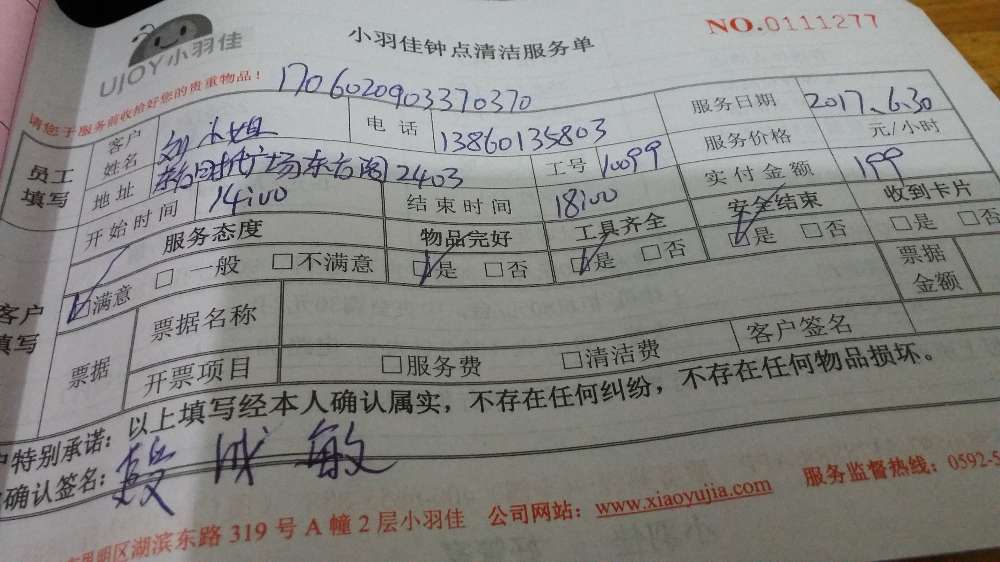 UJOY小羽佳
小羽佳钟点清洁服务单
NO.0111277
请您于服务前收拾好您的贵重物品！
1706020903370370
员工填写
客户姓名 刘小姐 电话 13860135803 服务日期 2017.6.30
地址 时代广场东方阁2403 工号 10099 服务价格 元/小时
开始时间 14:00 结束时间 18:00 实付金额 199
服务态度 物品完好 工具齐全 安全结束 收到卡片
客户填写
☑满意 □一般 □不满意 ☑是 □否 ☑是 □否 ☑是 □否 □是 □否
票据 票据名称 票据金额
开票项目 □服务费 □清洁费 客户签名
户特别承诺：以上填写经本人确认属实，不存在任何纠纷，不存在任何物品损坏。
确认签名：殷成敏
思明区湖滨东路319号A幢2层小羽佳 公司网站：www.xiaoyujia.com 服务监督热线：0592-5